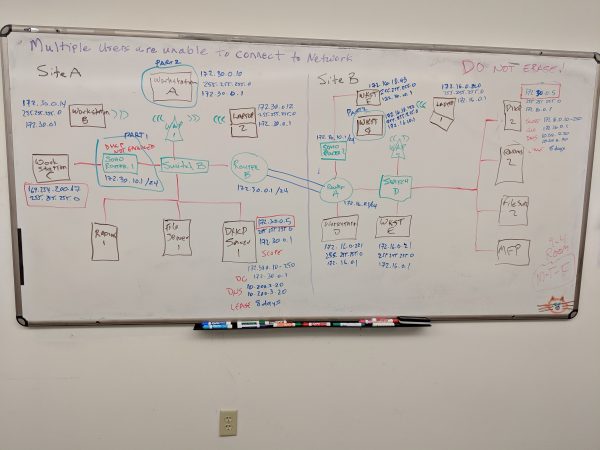 Multiple Users are unable to connect to Network
DO NOT ERASE!
Site A
PART 2
Workstation
A
172.30.0.10
255.255.255.0
172.30.10.1
172.30.0.14
255.255.255.0
172.30.0.1
Workstation
B
WAP
1
Laptop
2
172.30.0.12
255.255.255.0
172.30.0.1
PART 1
DHCP
NOT ENABLED
SOHO
Router 1
172.30.10.1 /24
Work
Station
C
169.254.200.12
255.255.255.0
Switch B
Router
B
172.30.0.1 /24
Radius
1
File
Server
1
DHCP
Server
1
172.30.0.5
255.255.255.0
172.30.0.1
Scope
DG 172.30.0.1
DNS
LEASE 8 days
Site B
WKST
F
172.16.10.1
PART
WKST
G
172.16.10.1/24
SOHO
Router
WAP
Laptop
1
255.255.255.0
172.16.0.1
Router
A
Switch
D
Workstation
D
255.255.255.0
172.16.0.1
WKST
E
172.16.0.21
255.255.255.0
172.16.0.1
DHCP
2
172.30.0.5
255.255.255.0
172.16.0.1
Scope
DG 172.16.0.1
DNS
8 days
Radius
2
File Serv
2
MFP
Room